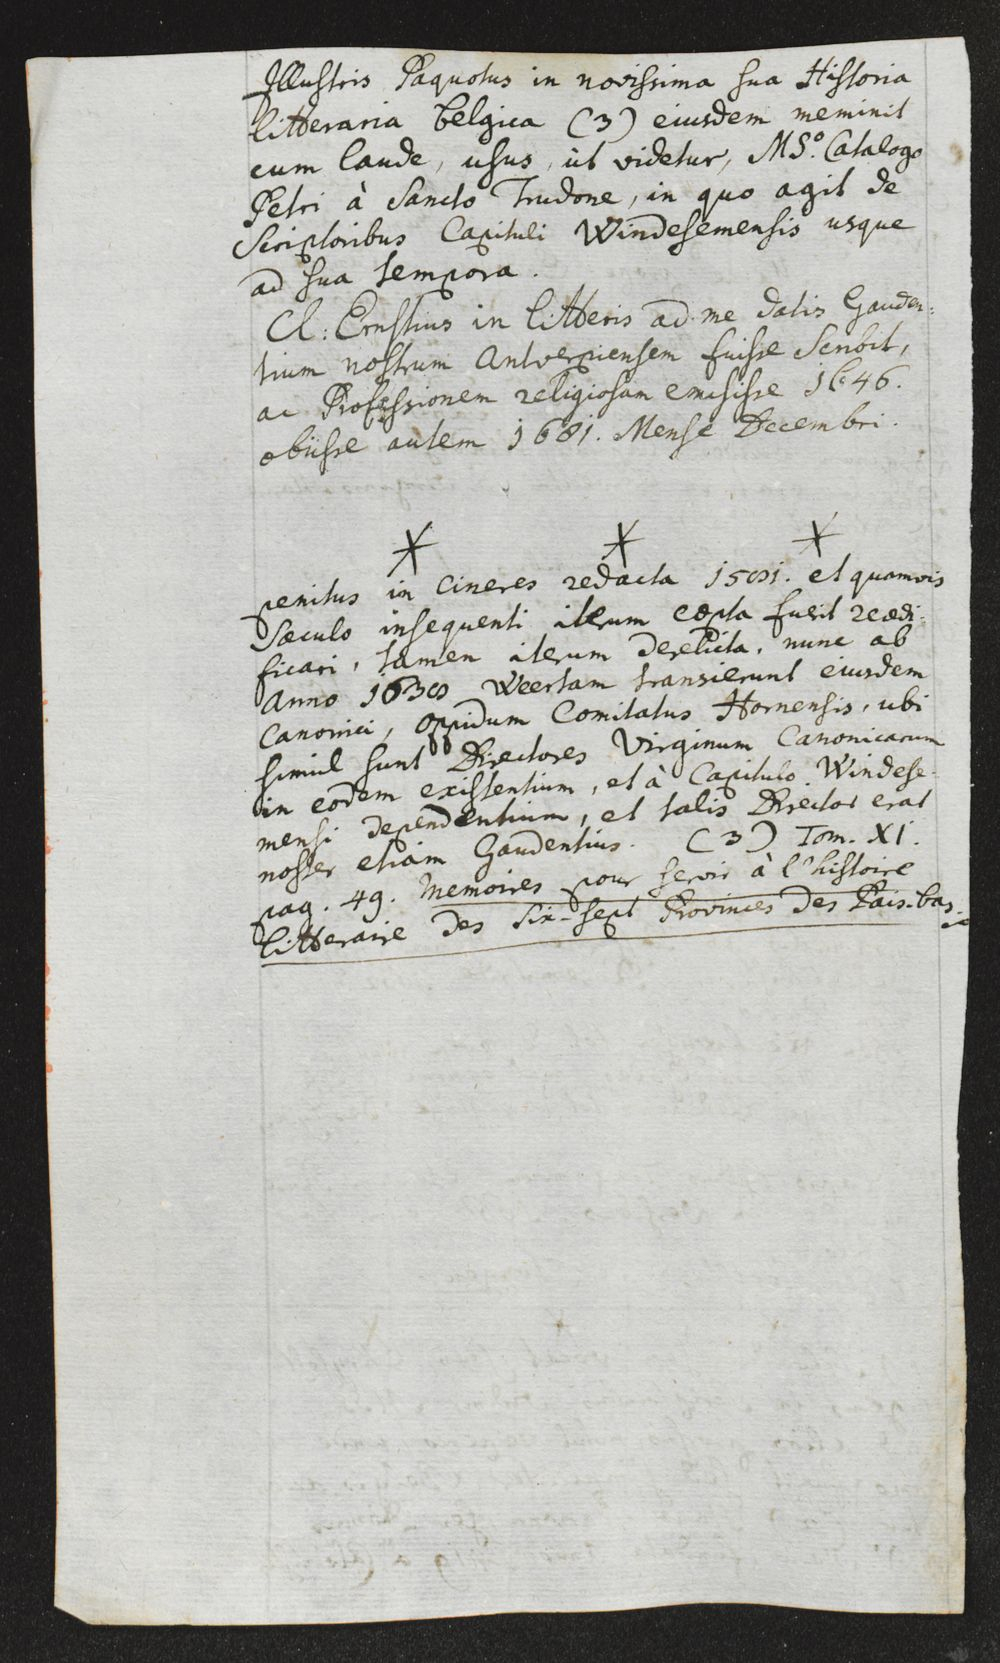 Illustris Paquotus in novissima sua Historia
litteraria belgica (3) eiusdem meminit
cum laude, usus, ut videtur, MS.º Catalogo
Petri à Sancto Trudone, in quo agit de
Scriptoribus Capituli Windesemensis usque
ad sua tempora.
Cl: Ernstius in litteris ad me datis Gauden:
tium nostrum Antverpiensem fuisse scribit,
ac Professionem religiosam emisisse 1646.
obiisse autem 1681. Mense Decembri.
* * *
penitus in cineres redacta 1501. et quamvis
Sæculo insequenti iterum cœpta fuerit reædi:
ficari, tamen iterum derelicta, nunc ab
Anno 1630 Weertam transierunt eiusdem
Canonici, oppidum Comitatus Hornensis, ubi
simul sunt Directores Virginum Canonicarum
in eodem existentium, et à Capitulo Windese-
mensi dependentium, et talis Director erat
noster etiam Gaudentius. (3) Tom. XI.
pag. 49. Memoires pour servir à l'histoire
litteraire des Six-sept Provinces des Païs-bas.